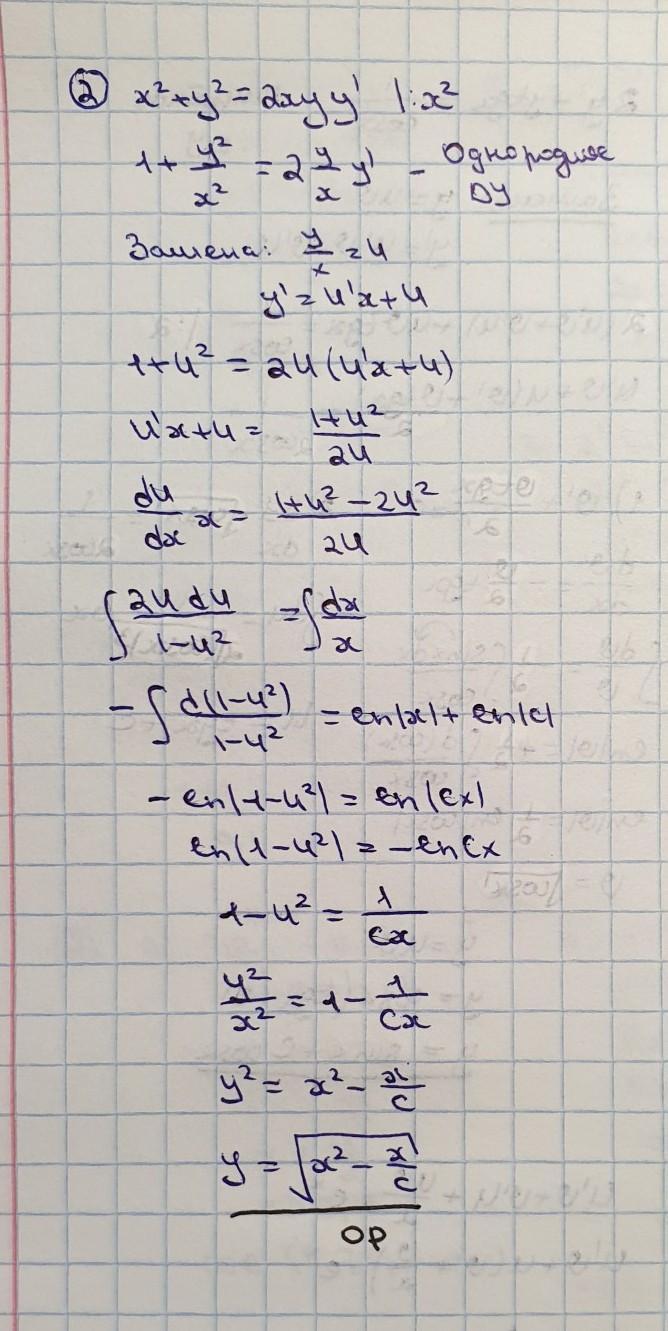 ② x²+y² = 2xyy' |:x²
1+y²/x² = 2 y/x y' - Однородное
ДУ
Замена: y/x = u
y' = u'x+u
1+u² = 2u(u'x+u)
u'x+u = (1+u²)/2u
du/dx x = (1+u²-2u²)/2u
∫ 2u du/(1-u²) = ∫ dx/x
- ∫ d(1-u²)/(1-u²) = ln|x| + ln|c|
- ln|1-u²| = ln|cx|
ln(1-u²) = -ln cx
1-u² = 1/cx
y²/x² = 1 - 1/cx
y² = x² - x/c
y = √(x² - x/c)
ОР